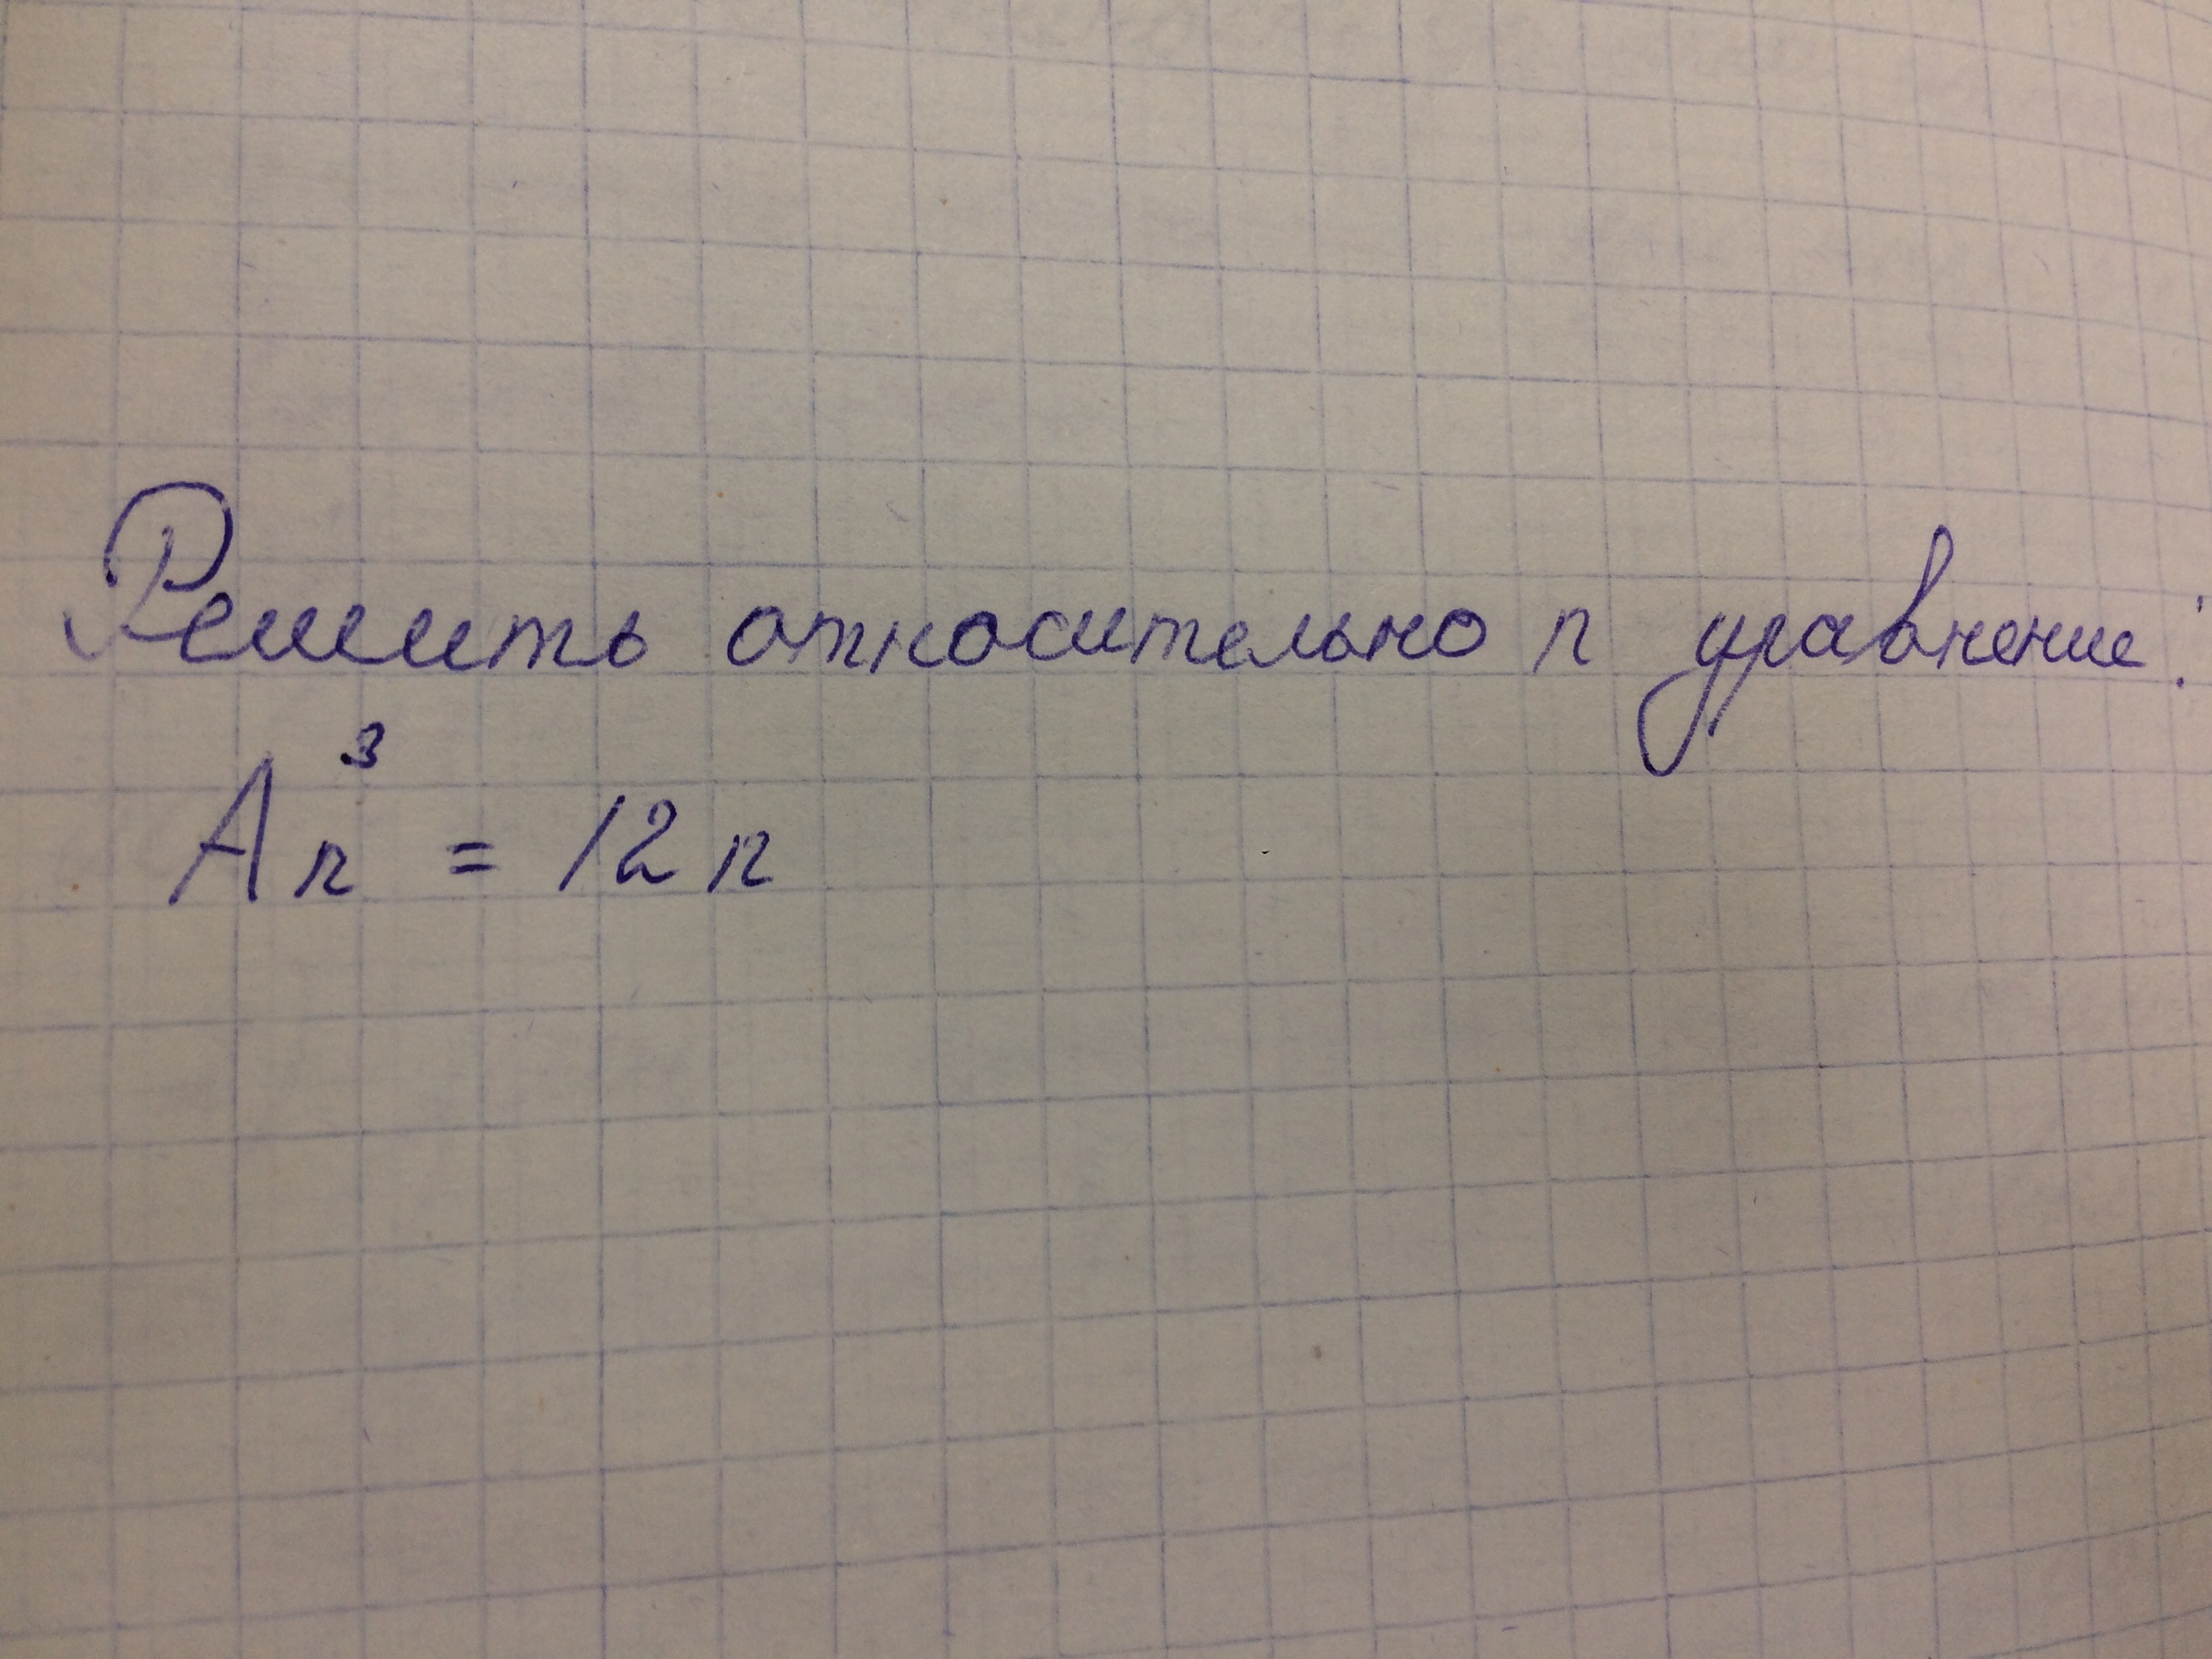 Решить относительно n уравнение:
Aₙ³ = 12n